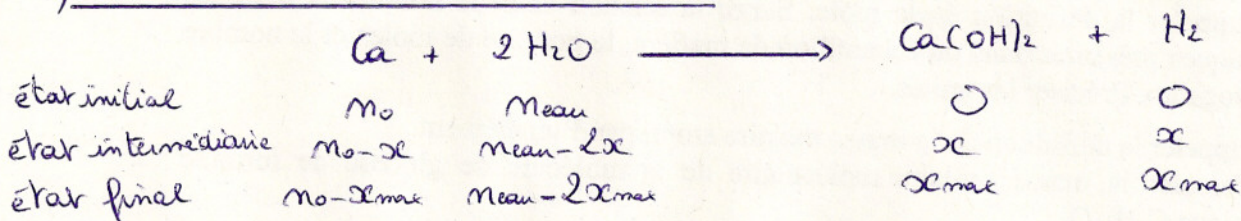 )
Ca + 2 H2O ⟶ Ca(OH)2 + H2
état initial no neau 0 0
état intermédiaire no-x neau-2x x x
état final no-xmax neau-2xmax xmax xmax